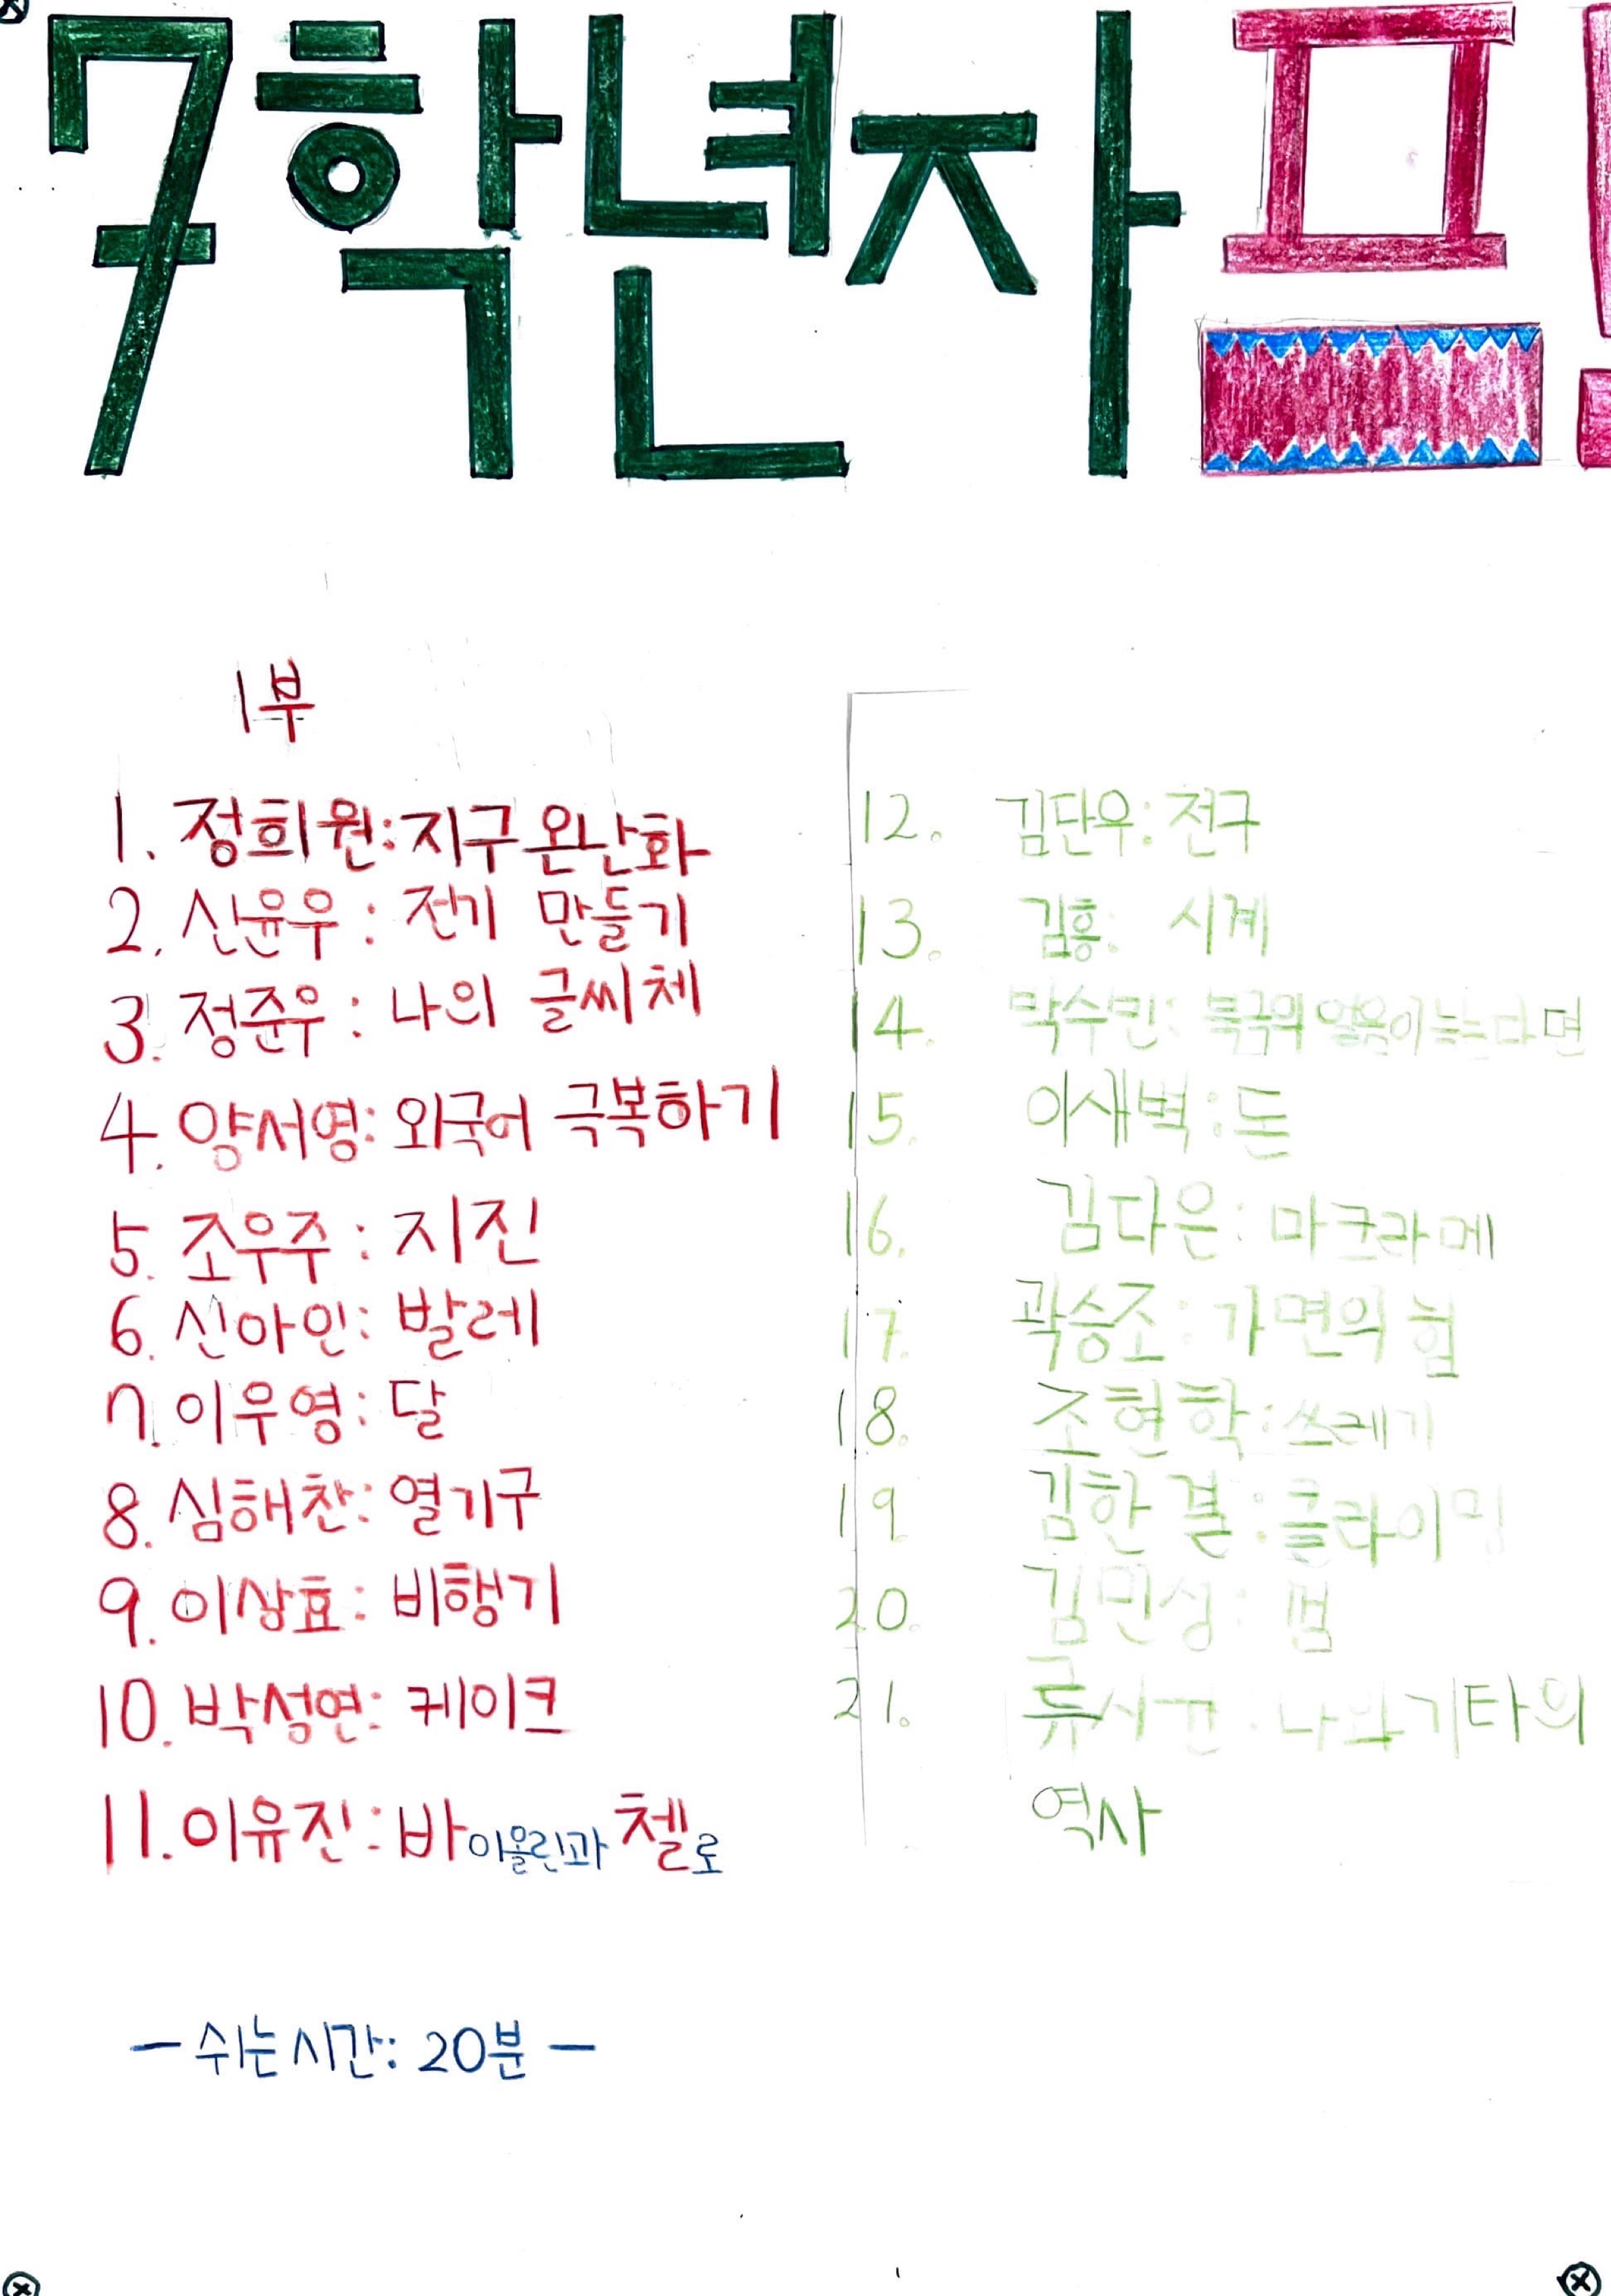 7학년자프!
1부
1. 정희원: 지구온난화
2. 신윤우: 전기 만들기
3. 정준우: 나의 글씨체
4. 양서영: 외국어 극복하기
5. 조우주: 지진
6. 신아인: 발레
7. 이우영: 달
8. 심해찬: 열기구
9. 이상효: 비행기
10. 박성연: 케이크
11. 이유진: 바이올린과 첼로
- 쉬는시간: 20분 -
12. 김단우: 전구
13. 김흥: 시계
14. 박수민: 북극의 얼음이 녹는다면
15. 이새벽: 돈
16. 김다은: 마크라메
17. 곽승조: 가면의 힘
18. 조현학: 쓰레기
19. 김한결: 클라이밍
20. 김민성:
21. 나와 기타의
역사